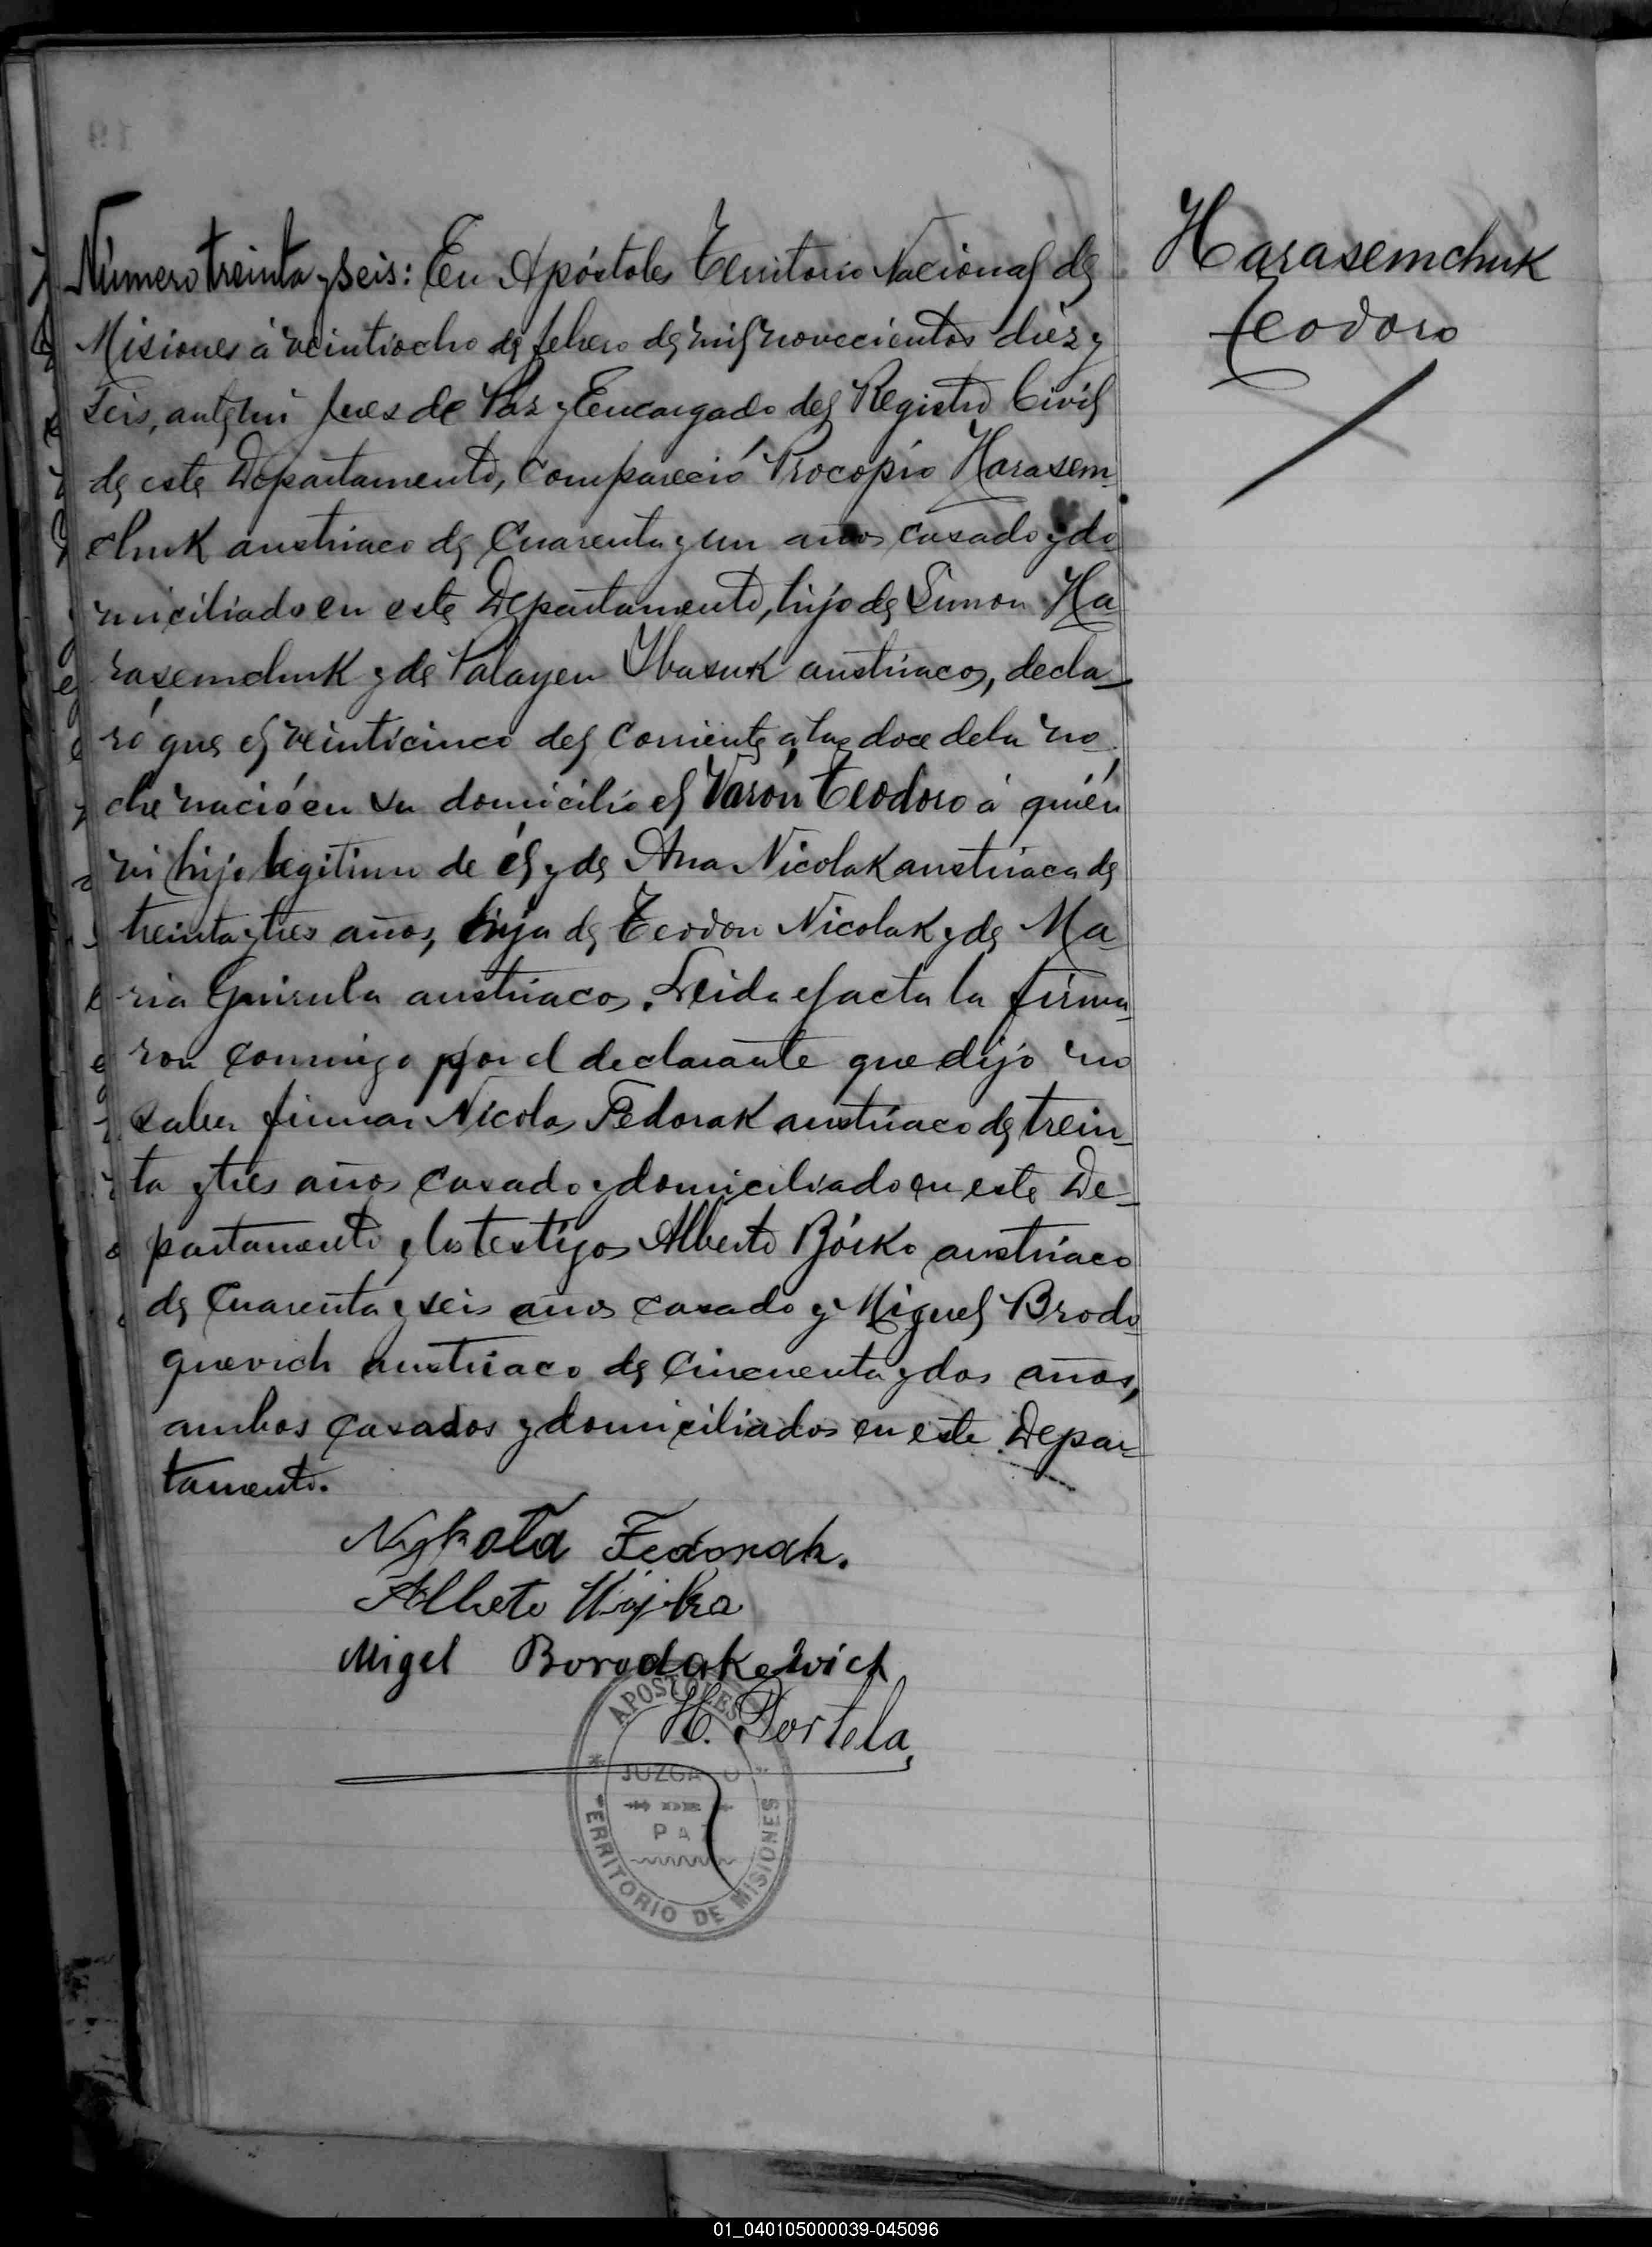 Harasemchuk
Teodoro
Número treinta y seis: En Apóstoles Territorio Nacional de
Misiones á veintiocho de febrero de mil novecientos diez y
seis, ante mi Juez de Paz y Encargado del Registro Civil
de este Departamento, compareció Procopio Harasem
chuk austriaco de cuarenta y un años casado y do
miciliado en este Departamento, hijo de Simon Ha
rasemchuk y de Palayen austriacos, decla
ró que el veinticinco del corriente a las doce de la no
che nació en su domicilio el Varón Teodoro á quién
vi hijo legitimo de él y de Ana Nicolak austriaca de
treinta y tres años, hija de Teodor Nicolak y de Ma
ria austriacos. Leida el acta la firma
ron conmigo por el declarante que dijo no
saber firmar Nicolas Fedorak austriaco de trein
ta y tres años casado y domiciliado en este De
partamento y los testigos Alberto Bóiko austriaco
de cuarenta y seis años casado y Miguel Brodo
quevich austriaco de cincuenta y dos años,
ambos casados y domiciliados en este Depar
tamento.
Nykola Fedorak.
Alberto Wojko
Migel Borodakewich
H. Portela
APOSTOLES
JUZGADO
DE
PAZ
TERRITORIO DE MISIONES
01_040105000039-045096